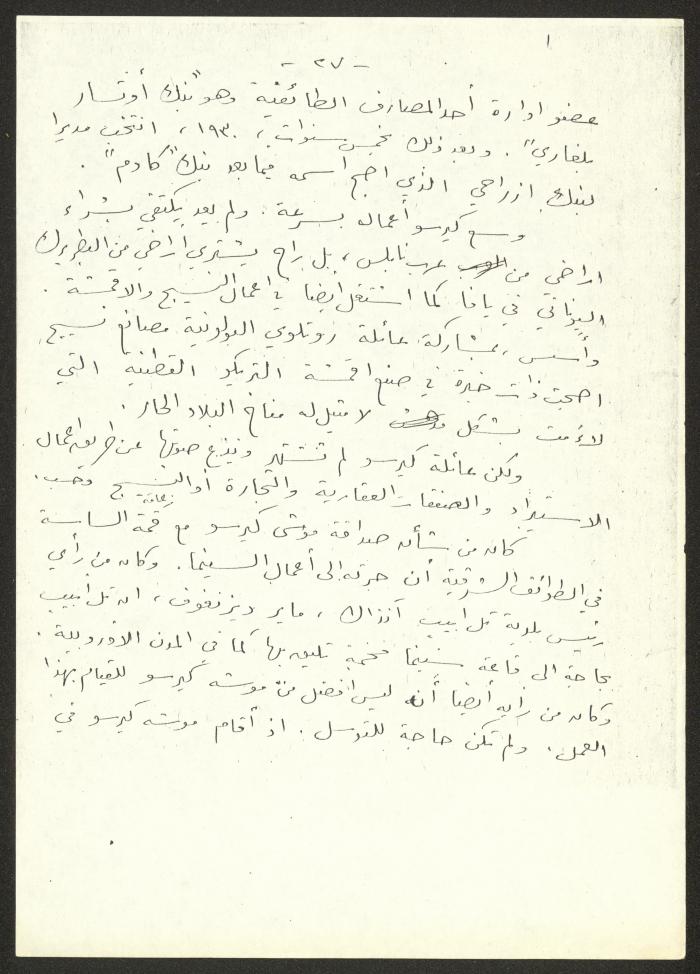 ا
- ٣٧ -
عضو ادارة أحد المصارف الطائفية وهو "بنك أوتسار
بلغاري". وبعد ذلك بخمس سنوات، ١٩٣٠، انتخب مديرا
لبنك ازراحي الذي اصبح اسمه فيما بعد بنك "كادم".
وسع كيرسو أعماله بسرعة. ولم يعد يكتفي بشراء
اراضي من عرب نابلس، بل راح يشتري أراضي من البطريرك
اليوناني في يافا كما اشتغل ايضا في اعمال النسيج والاقمشة.
وأسس، بمشاركة عائلة روتلوي البولونية مصانع نسيج
اصبحت ذات خبرة في صنع اقمشة التريكو القطنية التي
لاءمت بشكل لا مثيل له مناخ البلاد الحار.
ولكن عائلة كيرسو لم تشتهر ويذع صوتها عن طريق اعمال
الاستيراد والصفقات العقارية والتجارة أو النسيج وحسب.
كان من شأن صداقة موشي كيرسو مع قمة الساسة
في الطوائف الشرقية أن جرته الى أعمال السينما. وكان من رأي
رئيس بلدية تل ابيب آنذاك، ماير ديزنغوف، ان تل ابيب
بحاجة الى قاعة سينما فخمة تليق بها كما في المدن الاوروبية.
وكان من رايه أيضا أن ليس افضل من موشه كيرسو للقيام بهذا
العمل. ولم تكن حاجة للتوسل. اذ أقام موشه كيرسو في